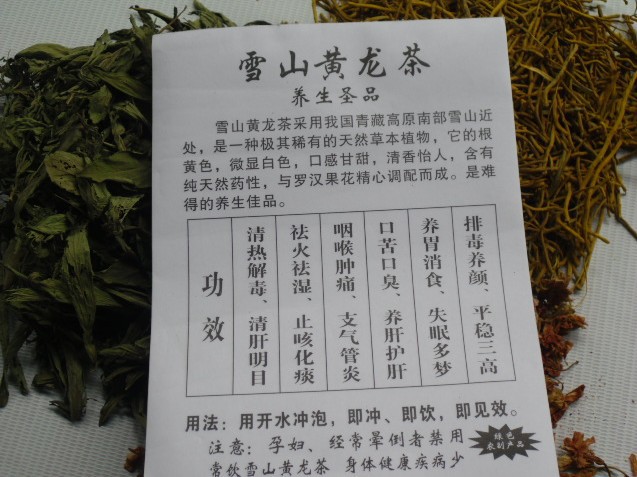 雪山黄龙茶
养生圣品
雪山黄龙茶采用我国青藏高原南部雪山近
处，是一种极其稀有的天然草本植物，它的根
黄色，微显白色，口感甘甜，清香怡人，含有
纯天然药性，与罗汉果花精心调配而成。是难
得的养生佳品。
功效
清热解毒、清肝明目
祛火祛湿、止咳化痰
咽喉肿痛、支气管炎
口苦口臭、养肝护肝
养胃消食、失眠多梦
排毒养颜、平稳三高
用法：用开水冲泡，即冲、即饮，即见效。
注意：孕妇、经常晕倒者禁用
常饮雪山黄龙茶 身体健康疾病少
绿色
农副产品